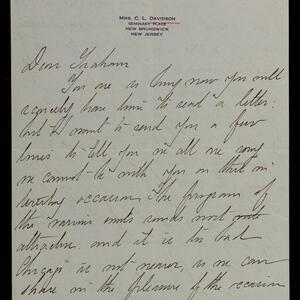 MRS. C. L. DAVIDSON
SEMINARY PLACE
NEW BRUNSWICK
NEW JERSEY
Dear Graham
You are so busy now you will
scarcely have time to read a letter,
but I want to send you a few
lines to tell you we all are sorry
we cannot be with you on this in-
teresting occasion. The program of
the various events sounds most
attractive and it is too bad
Chicago is not nearer, so we can
share in the pleasure of the occasion